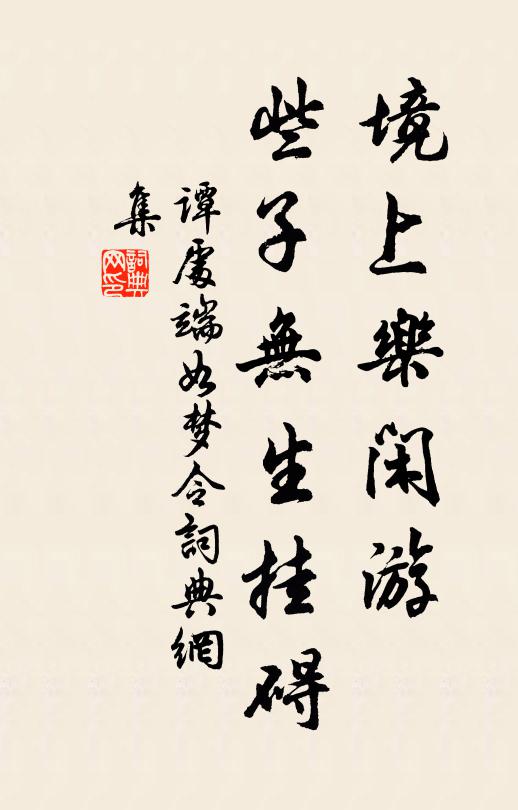 境上樂閑游
些子無生挂碍
譚處端如梦令詞典網
集
詞典
网印